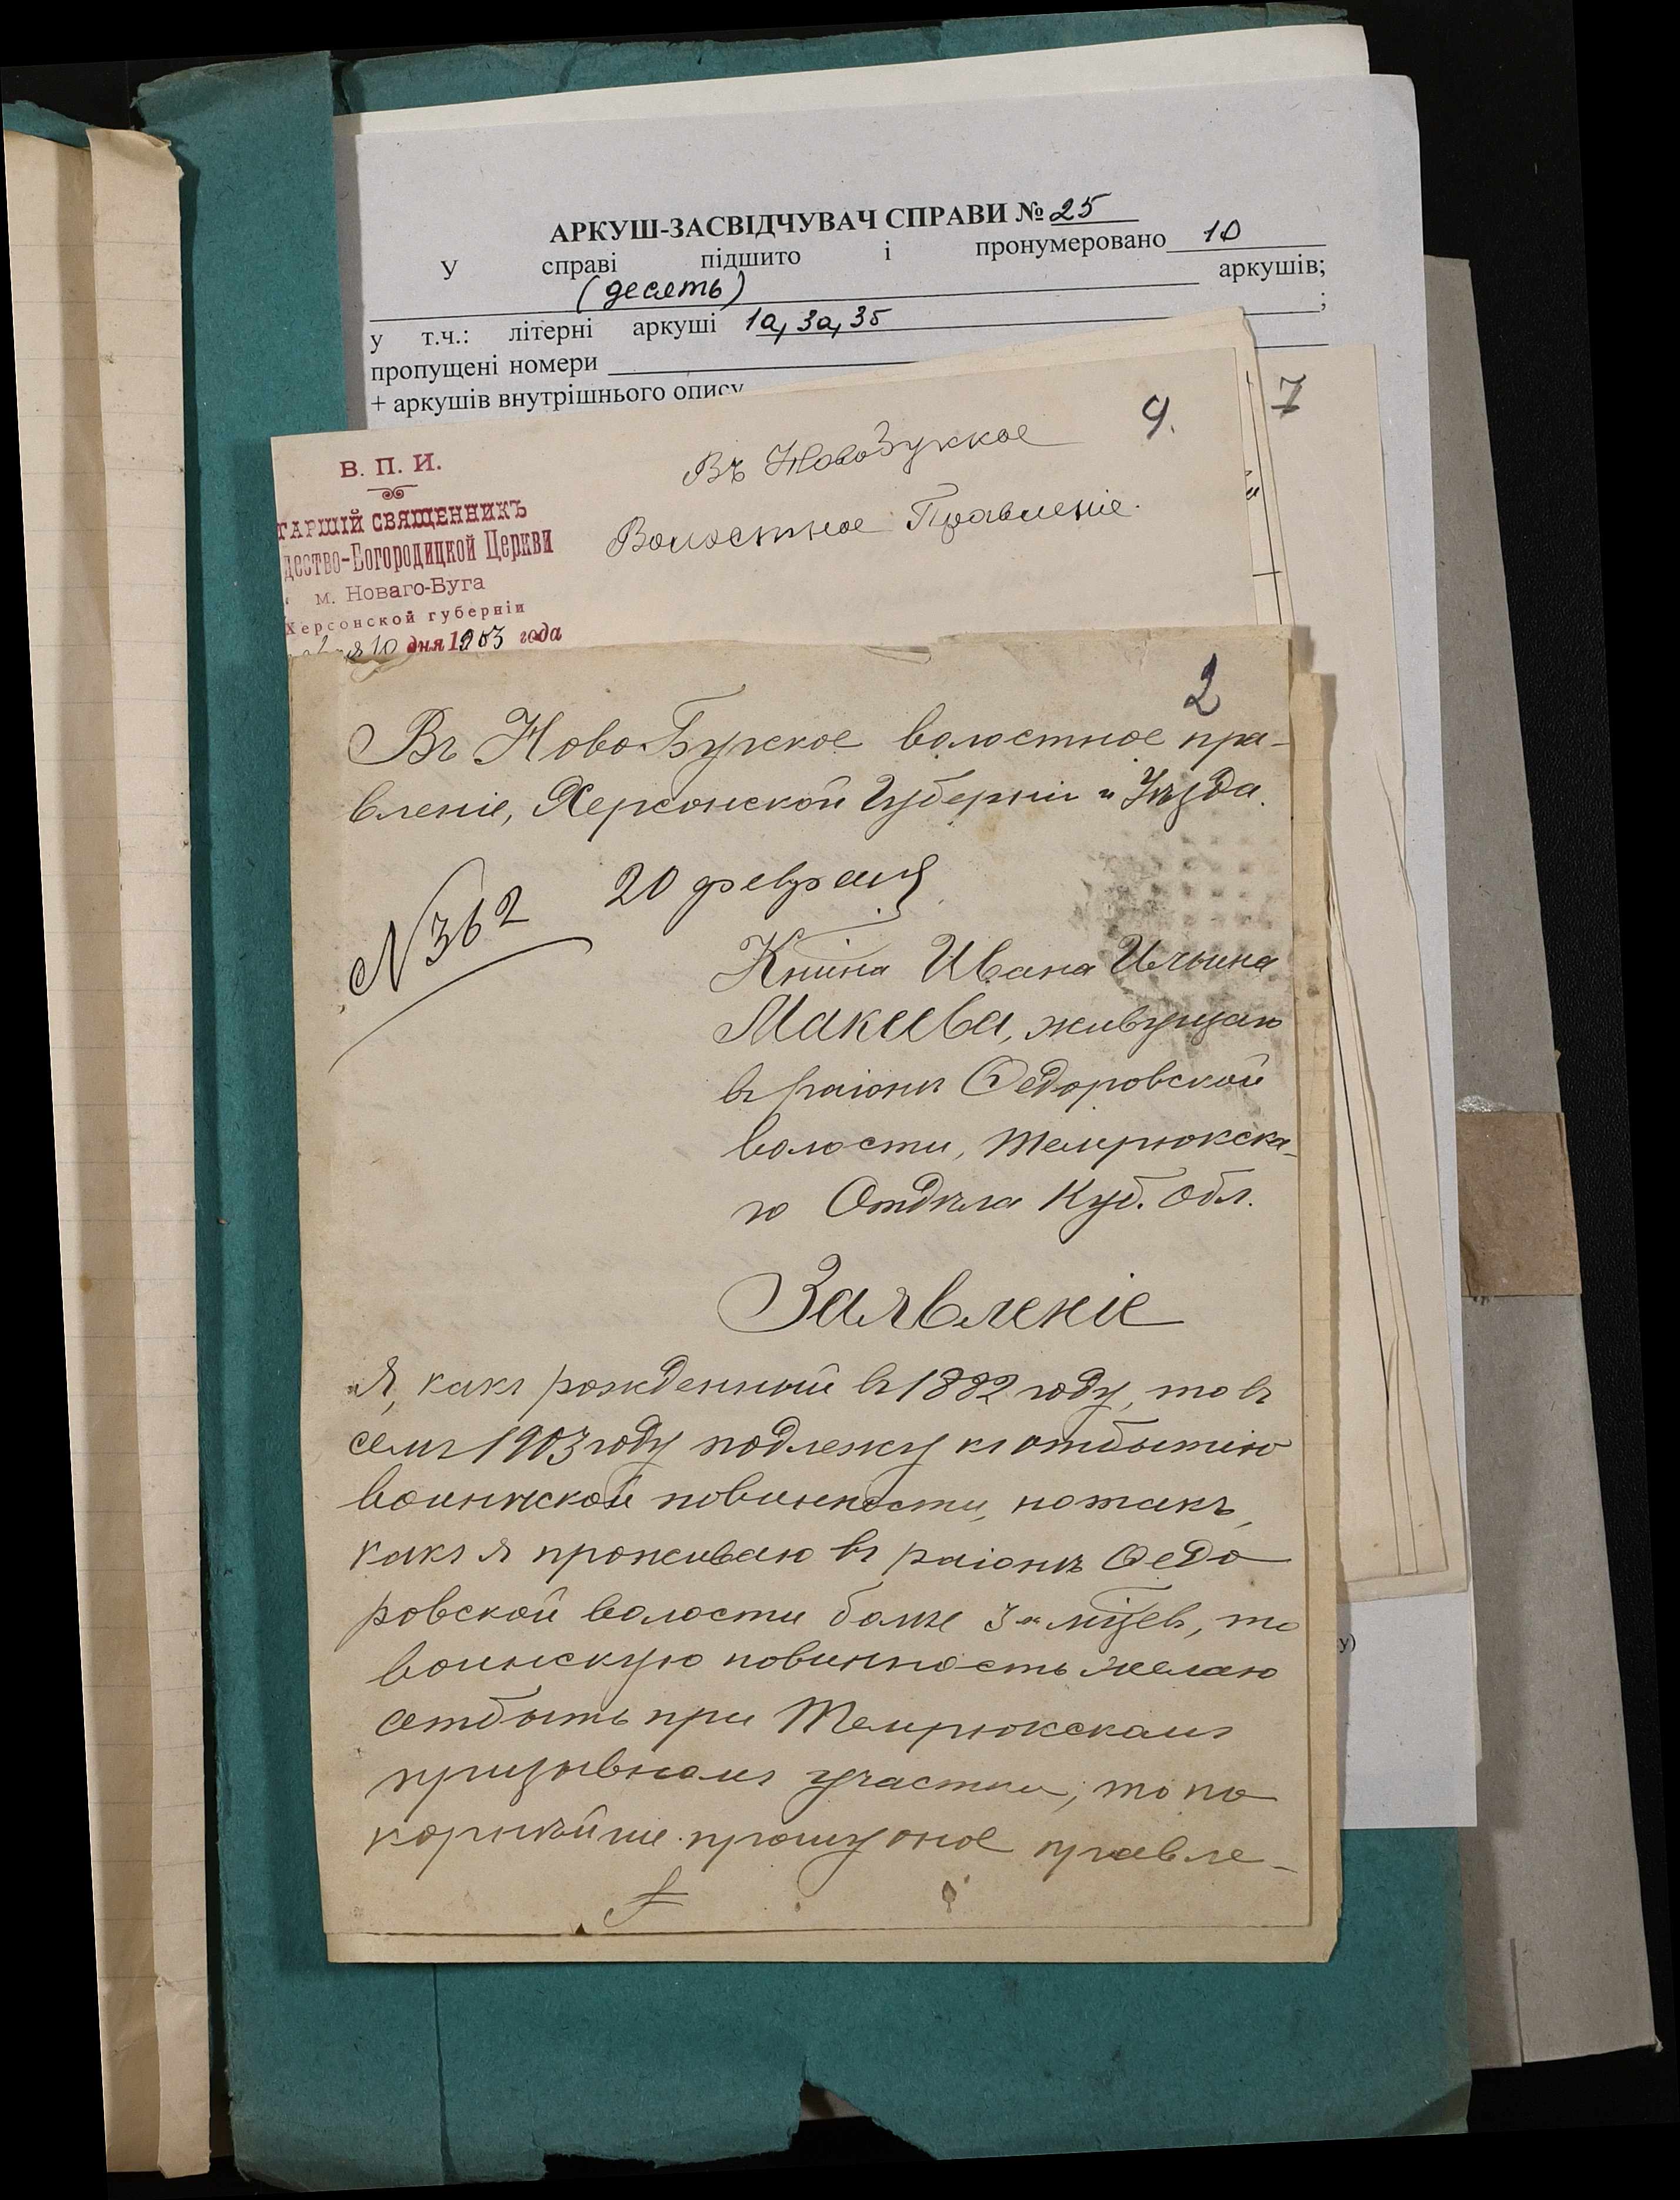 АРКУШ-ЗАСВІДЧУВАЧ СПРАВИ № 25
У справі підшито і пронумеровано 10
(десять) аркушів;
у т.ч.: літерні аркуші 1а, 3а, 3б ;
пропущені номери
+ аркушів внутрішнього опису
7
4.
Въ НовоБугское
Волостное Правленіе.
В. П. И.
ТАРШІЙ СВЯЩЕННИКЪ
ДЕСТВО-БОГОРОДИЦКОЙ ЦЕРКВИ
м. Новаго-Буга
Херсонской губерніи
10 дня 1903 года
2
Въ НовоБугское волостное пра-
вленіе, Херсонской Губерніи и Уѣзда.
20 февраля
N 362
Кнѣина Ивана Ильина
Макеева, живущаго
въ раіонѣ Федоровской
волости, Темрюкска-
го Отдѣла Куб. Обл.
Заявленіе
Я, какъ рожденный въ 1882 году, то въ
семъ 1903 году подлежу къ отбытію
воинской повинности, но такъ,
какъ я проживаю въ раіонѣ Федо
ровской волости болѣе 3-хъ мѣсцев, то
воинскую повинность желаю
отбыть при Темрюкскомъ
призывномъ участки, то по
корнѣйше прошу оное правле-
у)